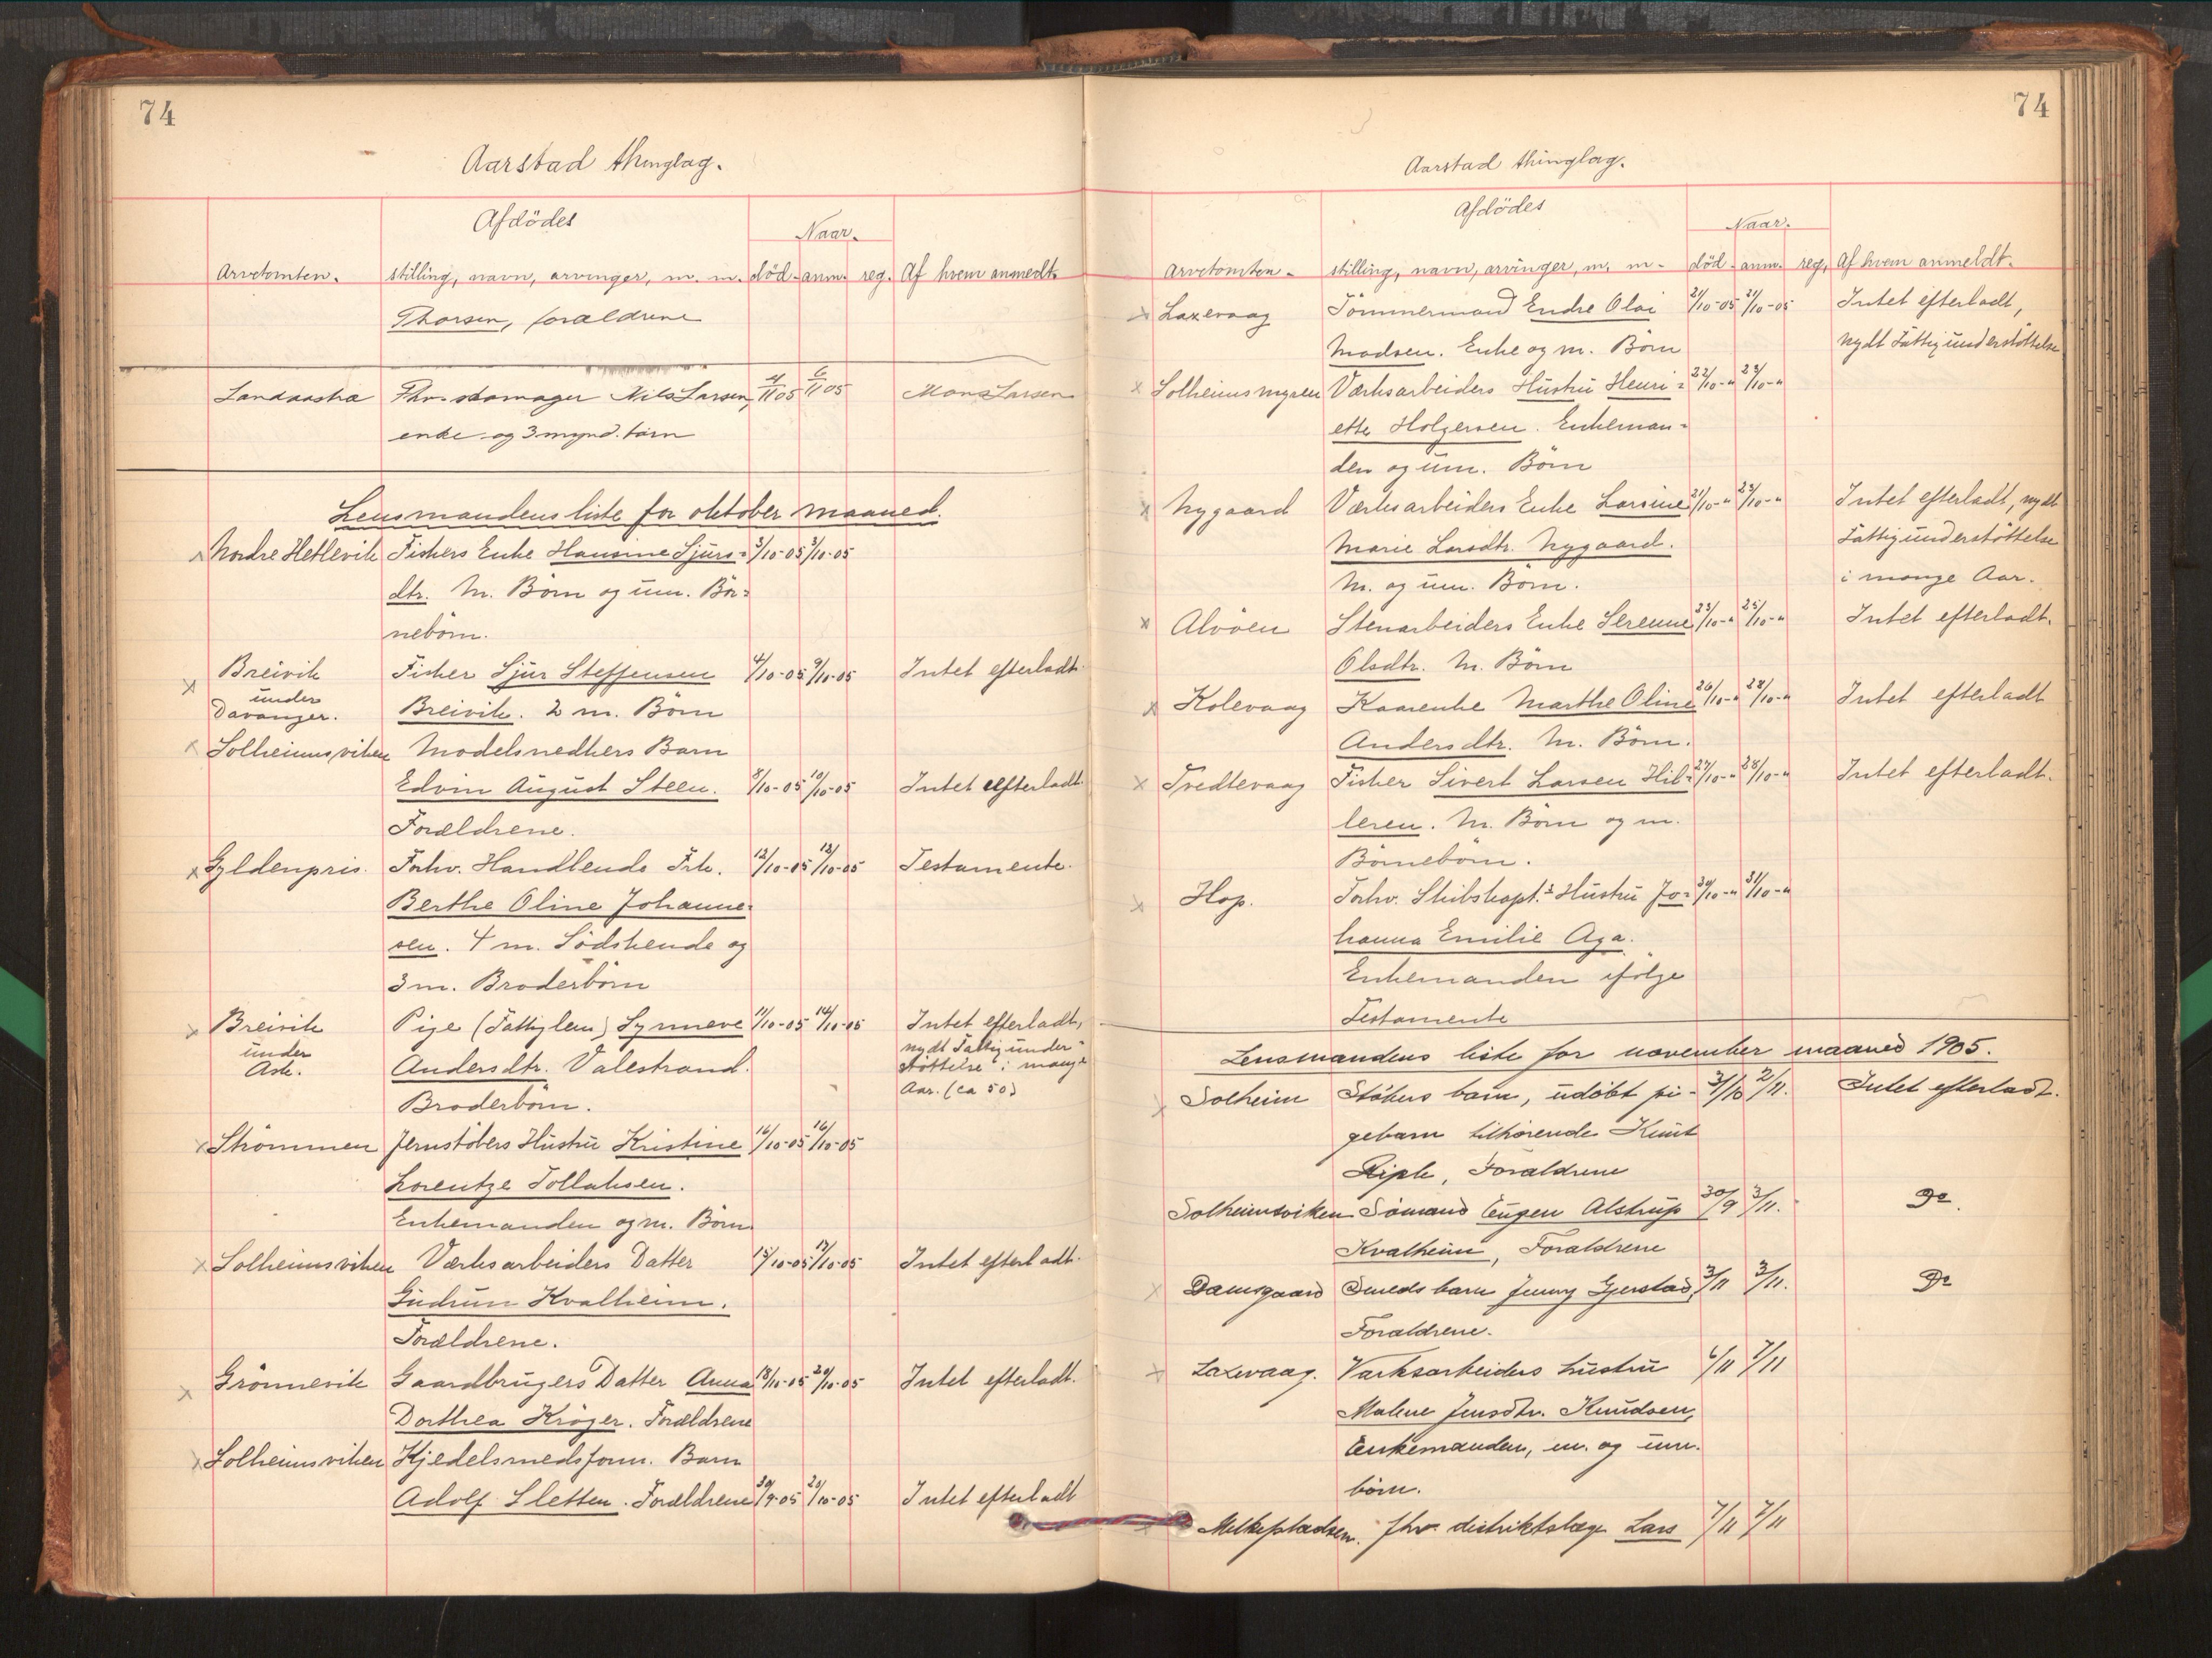 74
Aarstad thinglag.
Afdödes
Naar.
Arvetomten. stilling, navn, arvinger, m. m. död- anm. reg. Af hvem anmeldt.
Thorsen, forældrene
Landaastræ Fhv. skomager Nils Larsen, 4/11 05 6/11 05 Mons Larsen
enke og 3 mynd. børn
Lensmandens liste for oktober maaned.
Nordre Hetlevik Fiskers Enke Hansine Sjurs= 3/10-05 3/10-05
dtr. M. Börn og um. Bör=
nebörn.
Breivik Fisker Sjur Steffensen 4/10-05 9/10-05 Intet efterladt.
under
Davanger. Breivik. 2 m. Börn
Solheimsviken Modelsnedkers Barn
Edvin August Steen. 8/10-05 10/10-05 Intet efterladt.
Forældrene.
Gyldenpris. Forhv. Handlende Frk. 12/10-05 13/10-05 Testamente.
Berthe Oline Johanne=
sen. 4 m. Södskende og
3 m. Broderbörn
Breivik Pige (Fattiglem) Synneve 11/10-05 14/10-05 Intet efterladt,
under nydt Fattigunder=
Ask. Andersdtr. Valestrand. støttelse i mange
Broderbörn. Aar. (ca 50)
Strömmen Jernstöbers Hustru Kristine 16/10-05 16/10-05
Lorentze Tollaksen.
Enkemanden og m. Börn
Solheimsviken Værksarbeiders Datter 15/10-05 17/10-05 Intet efterladt.
Gudrun Kvalheim.
Forældrene.
Grönnevik Gaardbrugers Datter Anna 18/10-05 20/10-05 Intet efterladt.
Dorthea Kröger. Forældrene
Solheimsviken Kjedelsmedsform. Barn
Adolf Sletten. Forældrene 30/9-05 20/10-05 Intet efterladt
74
Aarstad thinglag.
Afdödes
Naar.
Arvetomten- stilling, navn, arvinger, m. m- död- anm. reg. Af hvem anmeldt.
Laxevaag Tömmermand Endre Olai 21/10-05 21/10-05 Intet efterladt,
Madsen. Enke og m. Börn nydt Fattigunderstöttelse
Solheimsmyren Værksarbeiders Hustru Henri= 22/10-" 23/10-"
ette Holgersen. Enkeman=
den og um. Börn
Nygaard Værksarbeiders Enke Larsine 21/10-" 23/10-" Intet efterladt, nydt
Marie Larsdtr. Nygaard. Fattigunderstöttelse
M. og um. Börn. i mange Aar.
Alvöen Stenarbeiders Enke Serenne 23/10-" 25/10-" Intet efterladt.
Olsdtr. M. Börn
Kolevaag Kaarenke Marthe Oline 26/10-" 28/10-" Intet efterladt
Andersdtr. M. Börn.
Tvedtevaag Fisker Sivert Larsen Hil= 27/10-" 28/10-" Intet efterladt.
leren. M. Börn og m.
Börnebörn.
Hop. Forhv. Skibskapt.s Hustru Jo= 30/10-" 31/10-"
hanna Emilie Aga.
Enkemanden ifölge
Testamente
Lensmandens liste for november maaned 1905.
Solheim Stökers barn, udöbt pi- 31/10 2/11. Intet efterladt.
gebarn tilhörende Knut
Riple, Forældrene
Solheimsviken Sömand Eugen Alstrup 30/9 3/11. Do.
Kvalheim, Forældrene
Damsgaard Smeds barn Jenny Gjerstad, 3/11 3/11. Do
Forældrene.
Laxevaag. Værksarbeiders hustru 6/11 7/11
Malene Jensdtr. Knudsen,
Enkemanden, m. og um.
börn.
Melkepladsen. fhv. distriktslæge Lars 7/11 7/11